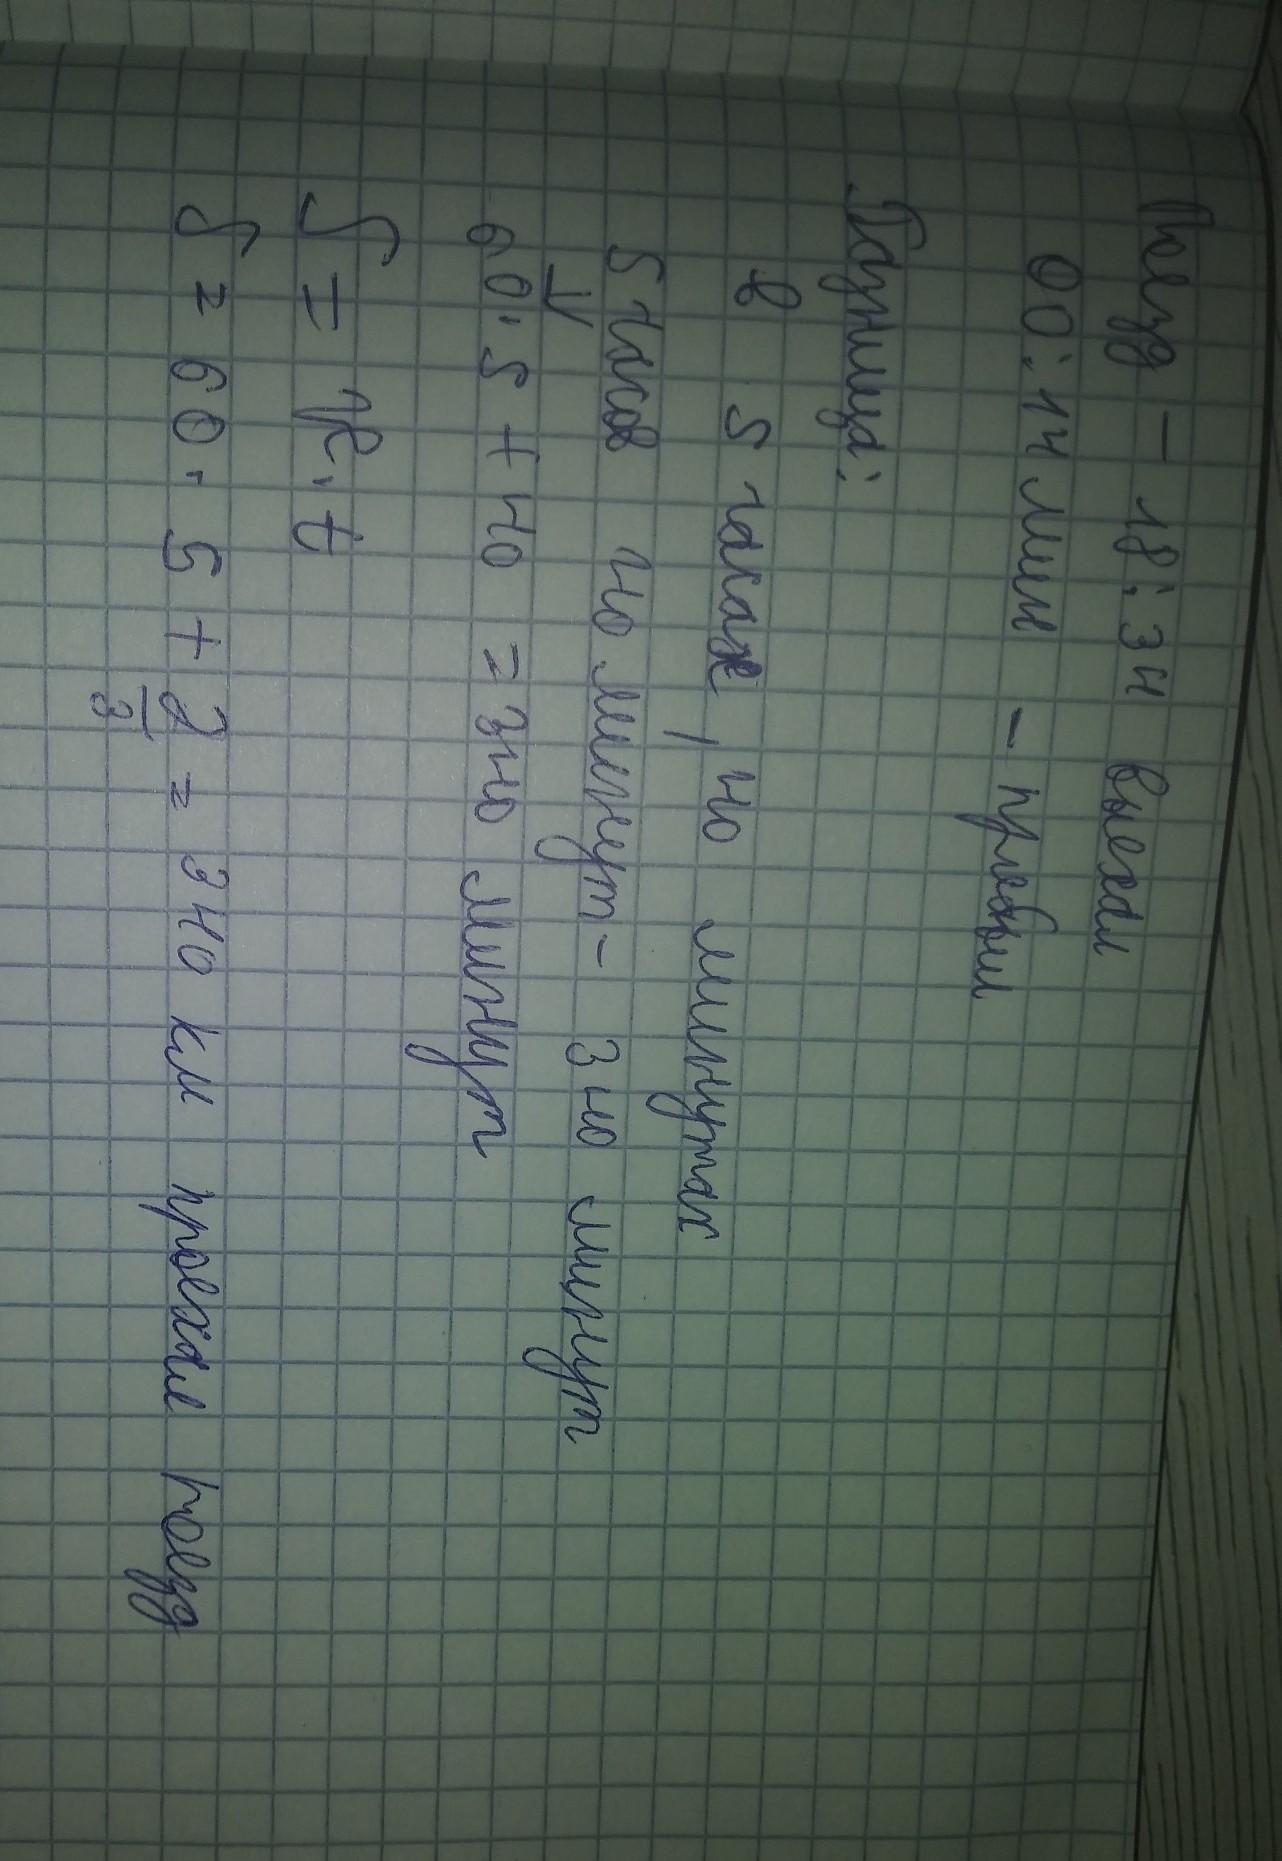 Поезд – 18:34 выехал
00:14 мин – прибыл
Разница:
в 5 часах, 40 минутах
5 часов 40 минут – 340 минут
↓
60·5+40 = 340 минут
S = V·t
S = 60·5 + 2/3 = 340 км проехал поезд